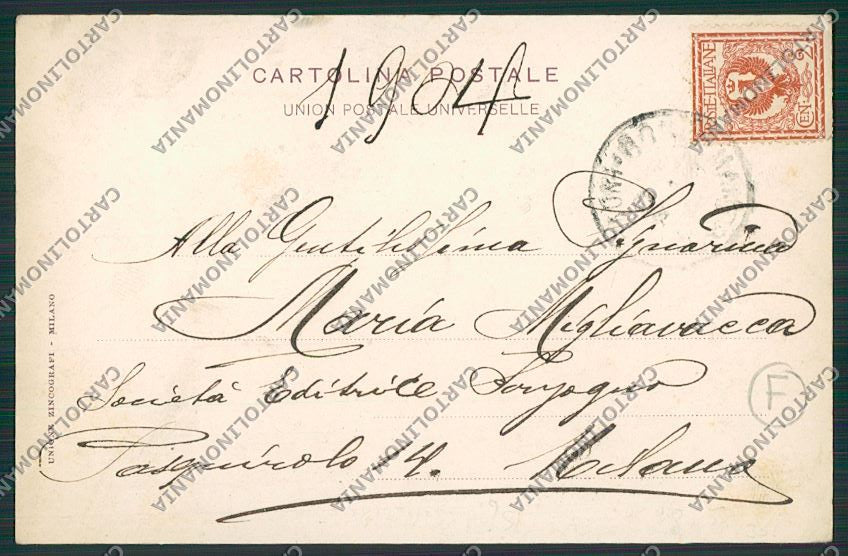 CARTOLINA POSTALE
UNION POSTALE UNIVERSELLE
1904
POSTE ITALIANE
CENT
Alla Gentilissima Signorina
Maria Migliavacca
Società Editrice Sonzogno
Pasquirolo 14. Milano
UNIONE ZINCOGRAFI - MILANO
F
CARTOLINOMANIA